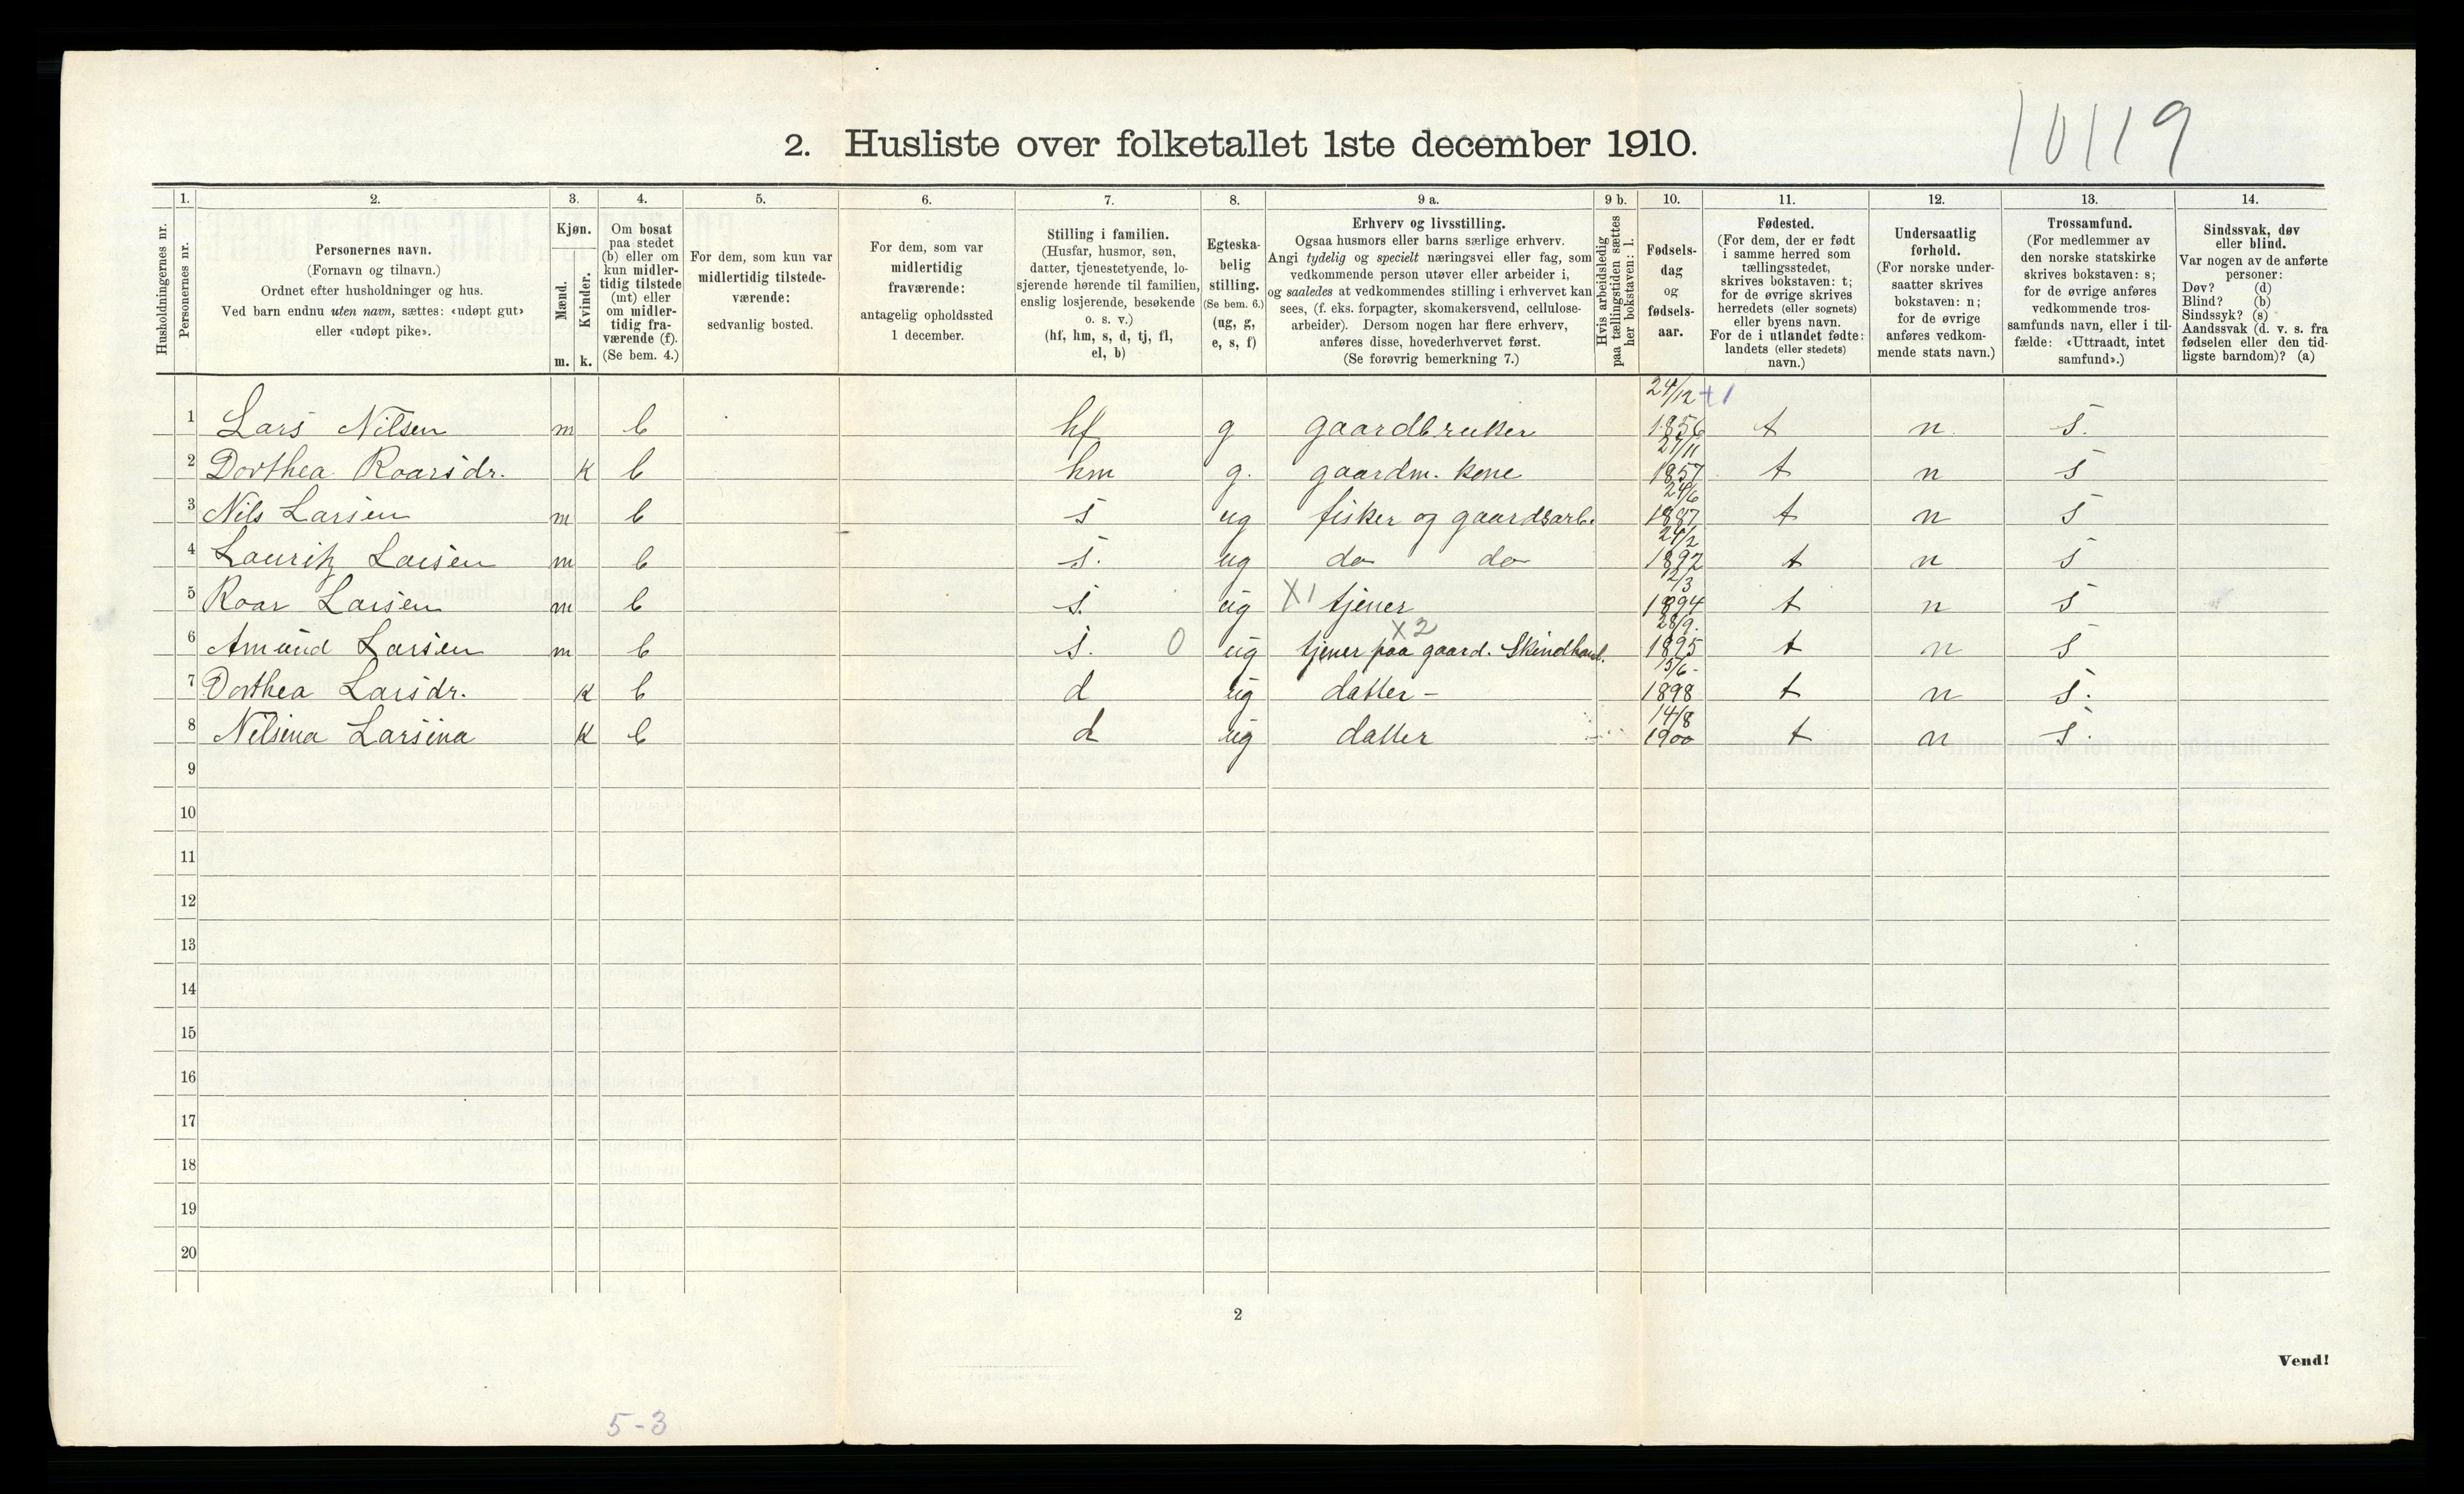 10119
2. Husliste over folketallet 1ste december 1910.
1. 2. 3. 4. 5. 6. 7. 8. 9 a. 9 b. 10. 11. 12. 13. 14.
Husholdningernes nr.
Personernes nr.
Personernes navn.
(Fornavn og tilnavn.)
Ordnet efter husholdninger og hus.
Ved barn endnu uten navn, sættes: «udøpt gut»
eller «udøpt pike».
Kjøn.
Mænd.
Kvinder.
m. k.
Om bosat
paa stedet
(b) eller om
kun midler-
tidig tilstede
(mt) eller
om midler-
tidig fra-
værende (f).
(Se bem. 4.)
For dem, som kun var
midlertidig tilstede-
værende:
sedvanlig bosted.
For dem, som var
midlertidig
fraværende:
antagelig opholdssted
1 december.
Stilling i familien.
(Husfar, husmor, søn,
datter, tjenestetyende, lo-
sjerende hørende til familien,
enslig losjerende, besøkende
o. s. v.)
(hf, hm, s, d, tj, fl,
el, b)
Egteska-
belig
stilling.
(Se bem. 6.)
(ug, g,
e, s, f)
Erhverv og livsstilling.
Ogsaa husmors eller barns særlige erhverv.
Angi tydelig og specielt næringsvei eller fag, som
vedkommende person utøver eller arbeider i,
og saaledes at vedkommendes stilling i erhvervet kan
sees, (f. eks. forpagter, skomakersvend, cellulose-
arbeider). Dersom nogen har flere erhverv,
anføres disse, hovederhvervet først.
(Se forøvrig bemerkning 7.)
Hvis arbeidsledig
paa tællingstiden sættes
her bokstaven: l.
Fødsels-
dag
og
fødsels-
aar.
Fødested.
(For dem, der er født
i samme herred som
tællingsstedet,
skrives bokstaven: t;
for de øvrige skrives
herredets (eller sognets)
eller byens navn.
For de i utlandet fødte:
landets (eller stedets)
navn.)
Undersaatlig
forhold.
(For norske under-
saatter skrives
bokstaven: n;
for de øvrige
anføres vedkom-
mende stats navn.)
Trossamfund.
(For medlemmer av
den norske statskirke
skrives bokstaven: s;
for de øvrige anføres
vedkommende tros-
samfunds navn, eller i til-
fælde: «Uttraadt, intet
samfund».)
Sindssvak, døv
eller blind.
Var nogen av de anførte
personer:
Døv? (d)
Blind? (b)
Sindssyk? (s)
Aandssvak (d. v. s. fra
fødselen eller den tid-
ligste barndom)? (a)
1 Lars Nilsen m b hf g gaardbruker 24/12 1856 +1 t n s.
2 Dorthea Roarsdr. k b hm g. gaardm. kone 27/11 1857 t n s
3 Nils Larsen m b s ug fisker og gaardsarb. 24/6 1887 t n s
4 Lauritz Larsen m b s. ug do do 24/2 1892 t n s
5 Roar Larsen m b s. ug X1 tjener 12/3 1894 t n s
X2
6 Amund Larsen m b s. 0 ug tjener paa gaard. Skindhand. 28/9. 1895 t n s
7 Dorthea Larsdr. k b d ug datter - 15/6- 1898 t n s.
8 Nelsina Larsina k b d ug datter 14/8 1900 t n s.
9
10
11
12
13
14
15
16
17
18
19
20
2
Vend!
5-3